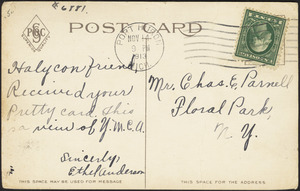 #6881.
POST CARD
NOV 14
9 PM
1913
MICH.
Halycon friend
Received your
Pretty card. This
a view of Y.M.C.A.
Sincerly,
Ethel Henderson
Mr. Chas. E. Parnell
Floral Park,
N.Y.
THIS SPACE MAY BE USED FOR MESSAGE
THIS SPACE FOR ADDRESS ONLY